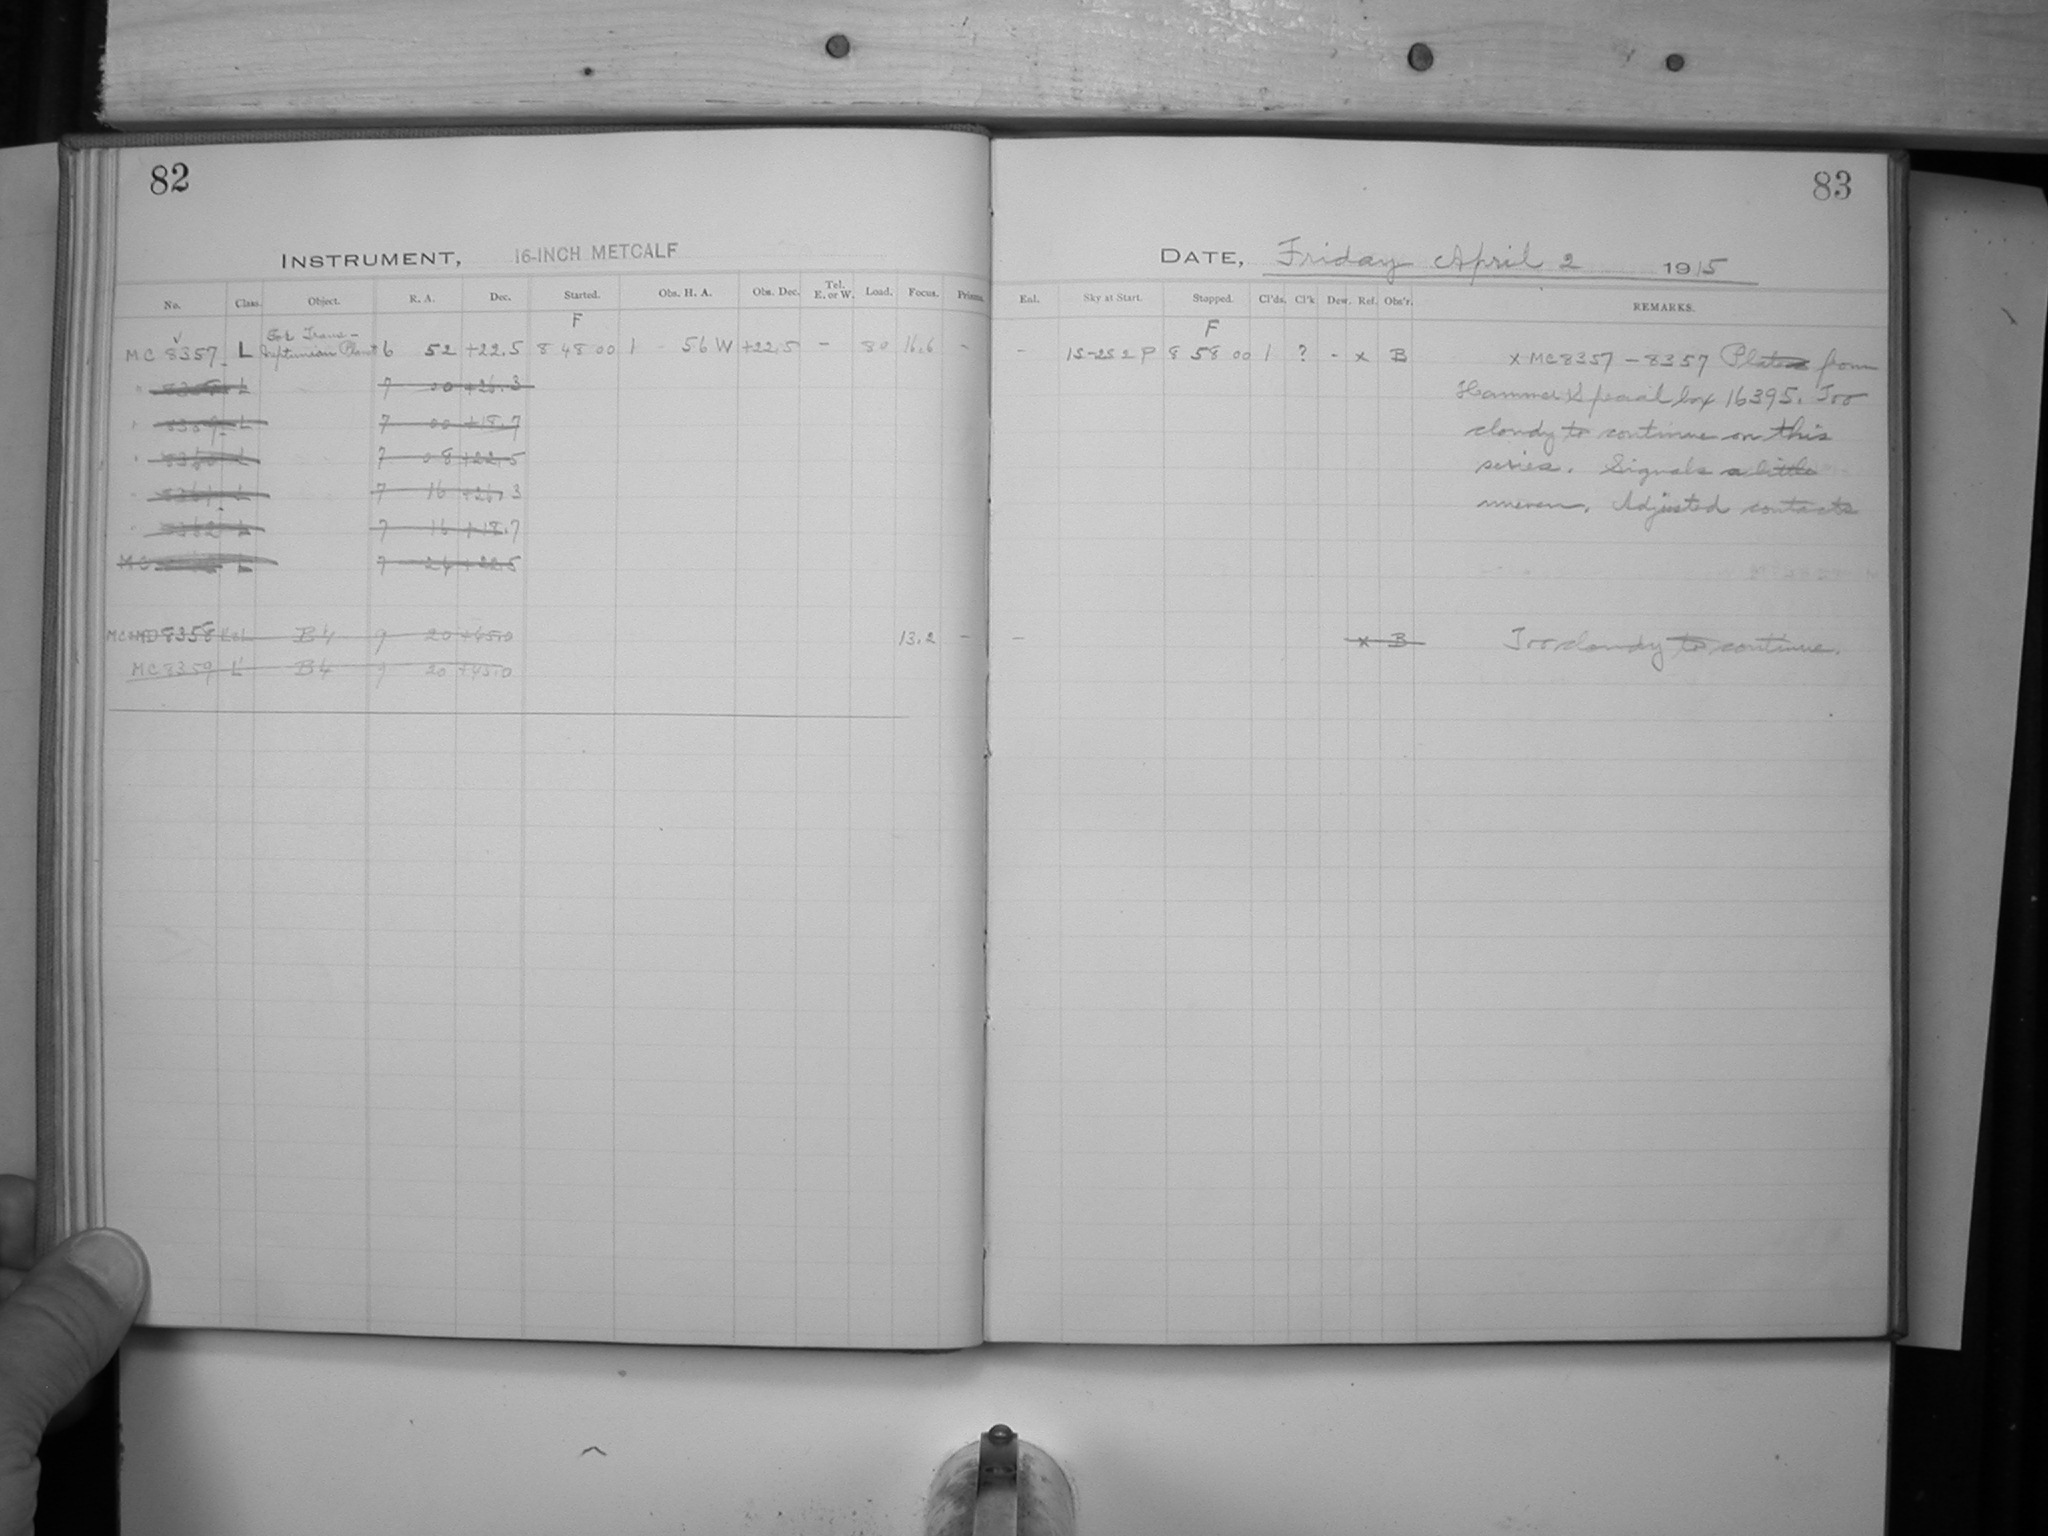 82
INSTRUMENT, 16-INCH METCALF
No. Class. Object. R. A. Dec. Started. Obs. H. A. Obs. Dec. Tel. E. or W. Load. Focus. Prisms.
F
For Trans-
MC 8357 L Neptunian Planet 6 52 +22.5 8 48 00 1 56 W +22.5 - 80 16.6 -
" 8358 L 7 00 +26.3
" 8359 L 7 00 +18.7
" 8360 L 7 08 +22.5
" 8361 L 7 16 +26.3
" 8362 L 7 16 +18.7
MC L 7 24 +22.5
8358 B4 9 20 +45.0 13.2 -
MC 8359 L B4 9 20 +45.0
83
DATE, Friday April 2 1915
Enl. Sky at Start. Stopped. Cl'ds. Cl'k Dew. Ref. Obs'r. REMARKS.
F
- 15-25 2 P 8 58 00 1 ? - x B x MC8357 - 8357 Plates from
Hammer Special box 16395. Too
cloudy to continue on this
series. Signals a little
uneven. Adjusted contacts
- x B Too cloudy to continue.